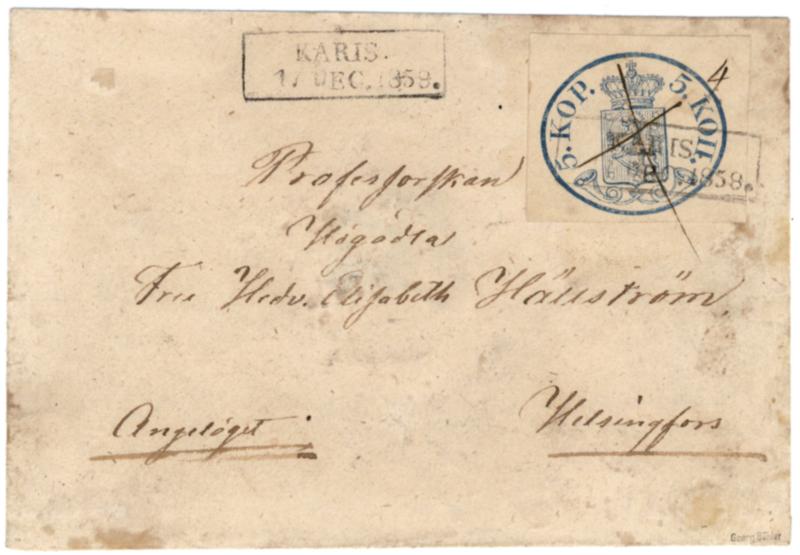 KARIS.
17 DEC. 1858.
4
5. KOP. 5. КОП.
KARIS.
1858.
Professorskan
Högädla
Fru Hedv. Elisabeth Hällström
Angeläget
Helsingfors
Georg Bühler